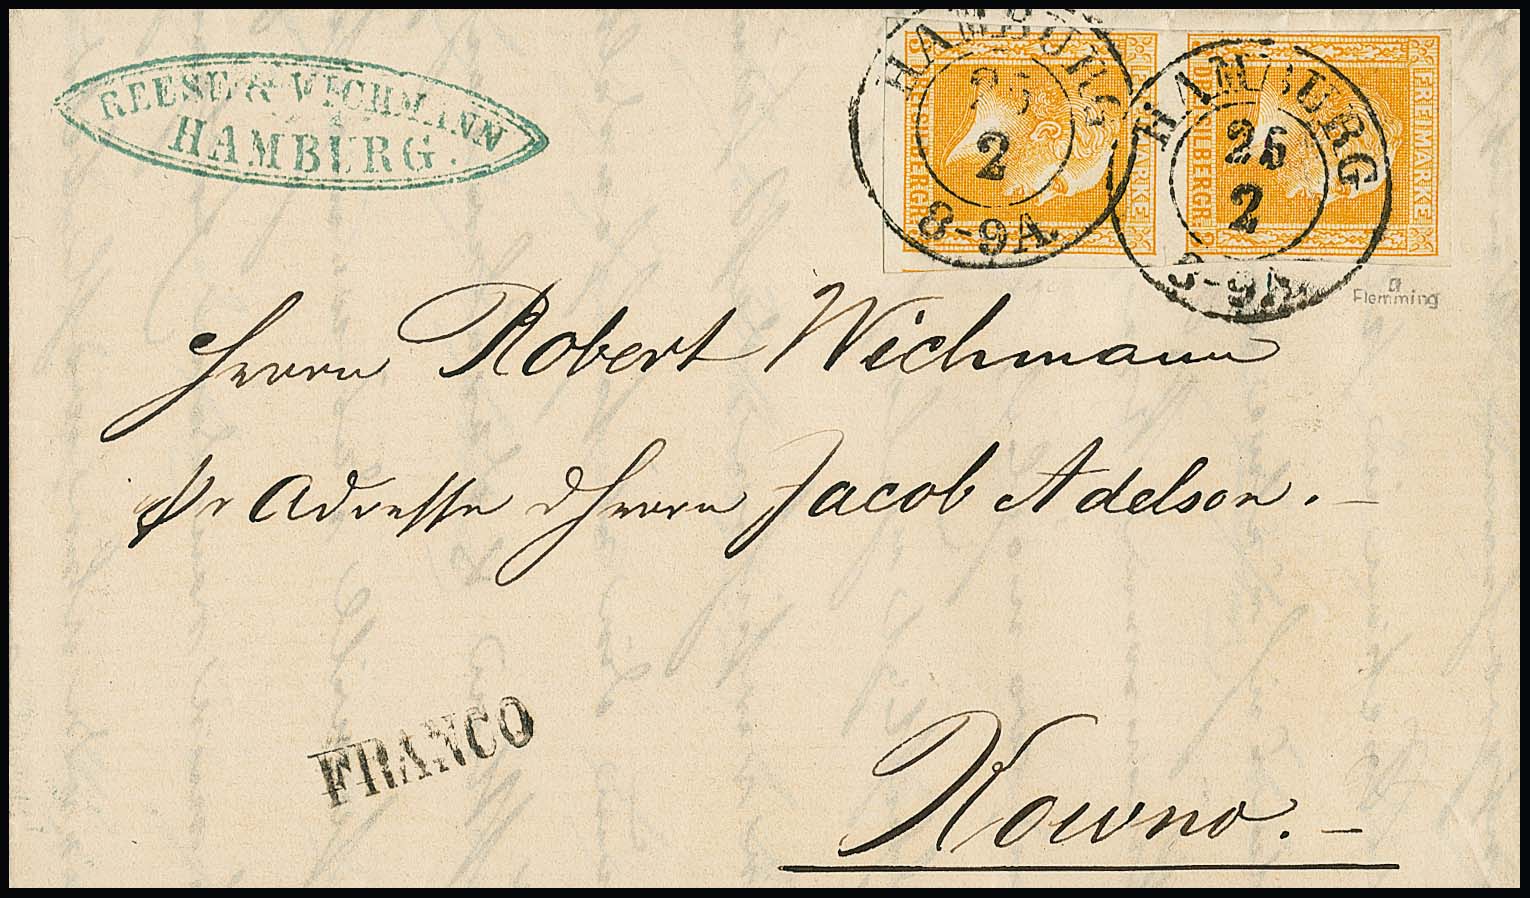 REESE & WICHMANN
HAMBURG.
HAMBURG
25
2
8-9A.
HAMBURG
25
2
8-9A.
FREIMARKE
SILBERGR. 2
FREIMARKE
SILBERGR. 2
Flemming
Herrn Robert Wichmann
pr Adresse d Herrn Jacob Adelson.–
FRANCO
Kowno.–